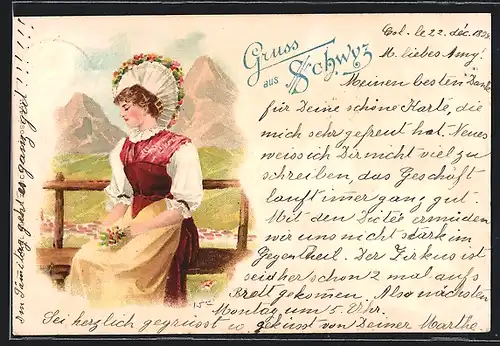 Gruss
aus
Schwyz
Col. le 22 déc. 189
M. liebes Amy!
Meinen besten Dank
für Deine schöne Karte, die
mich sehr gefreut hat. Neues
weiss ich Dir nicht viel zu
schreiben, das Geschäft
lauft immer ganz gut.
Mit den Düten ermüden
wir uns nicht stark im
Gegentheil. Der Zirkus ist
seidher schon 2 mal aufs
Brett gekommen. Also nächsten
Montag um 5 Uhr.
Sei herzlich gegrüsst u. geküsst von Deiner Marthe.
Am Samstag geht es ganz gut!!!!!!